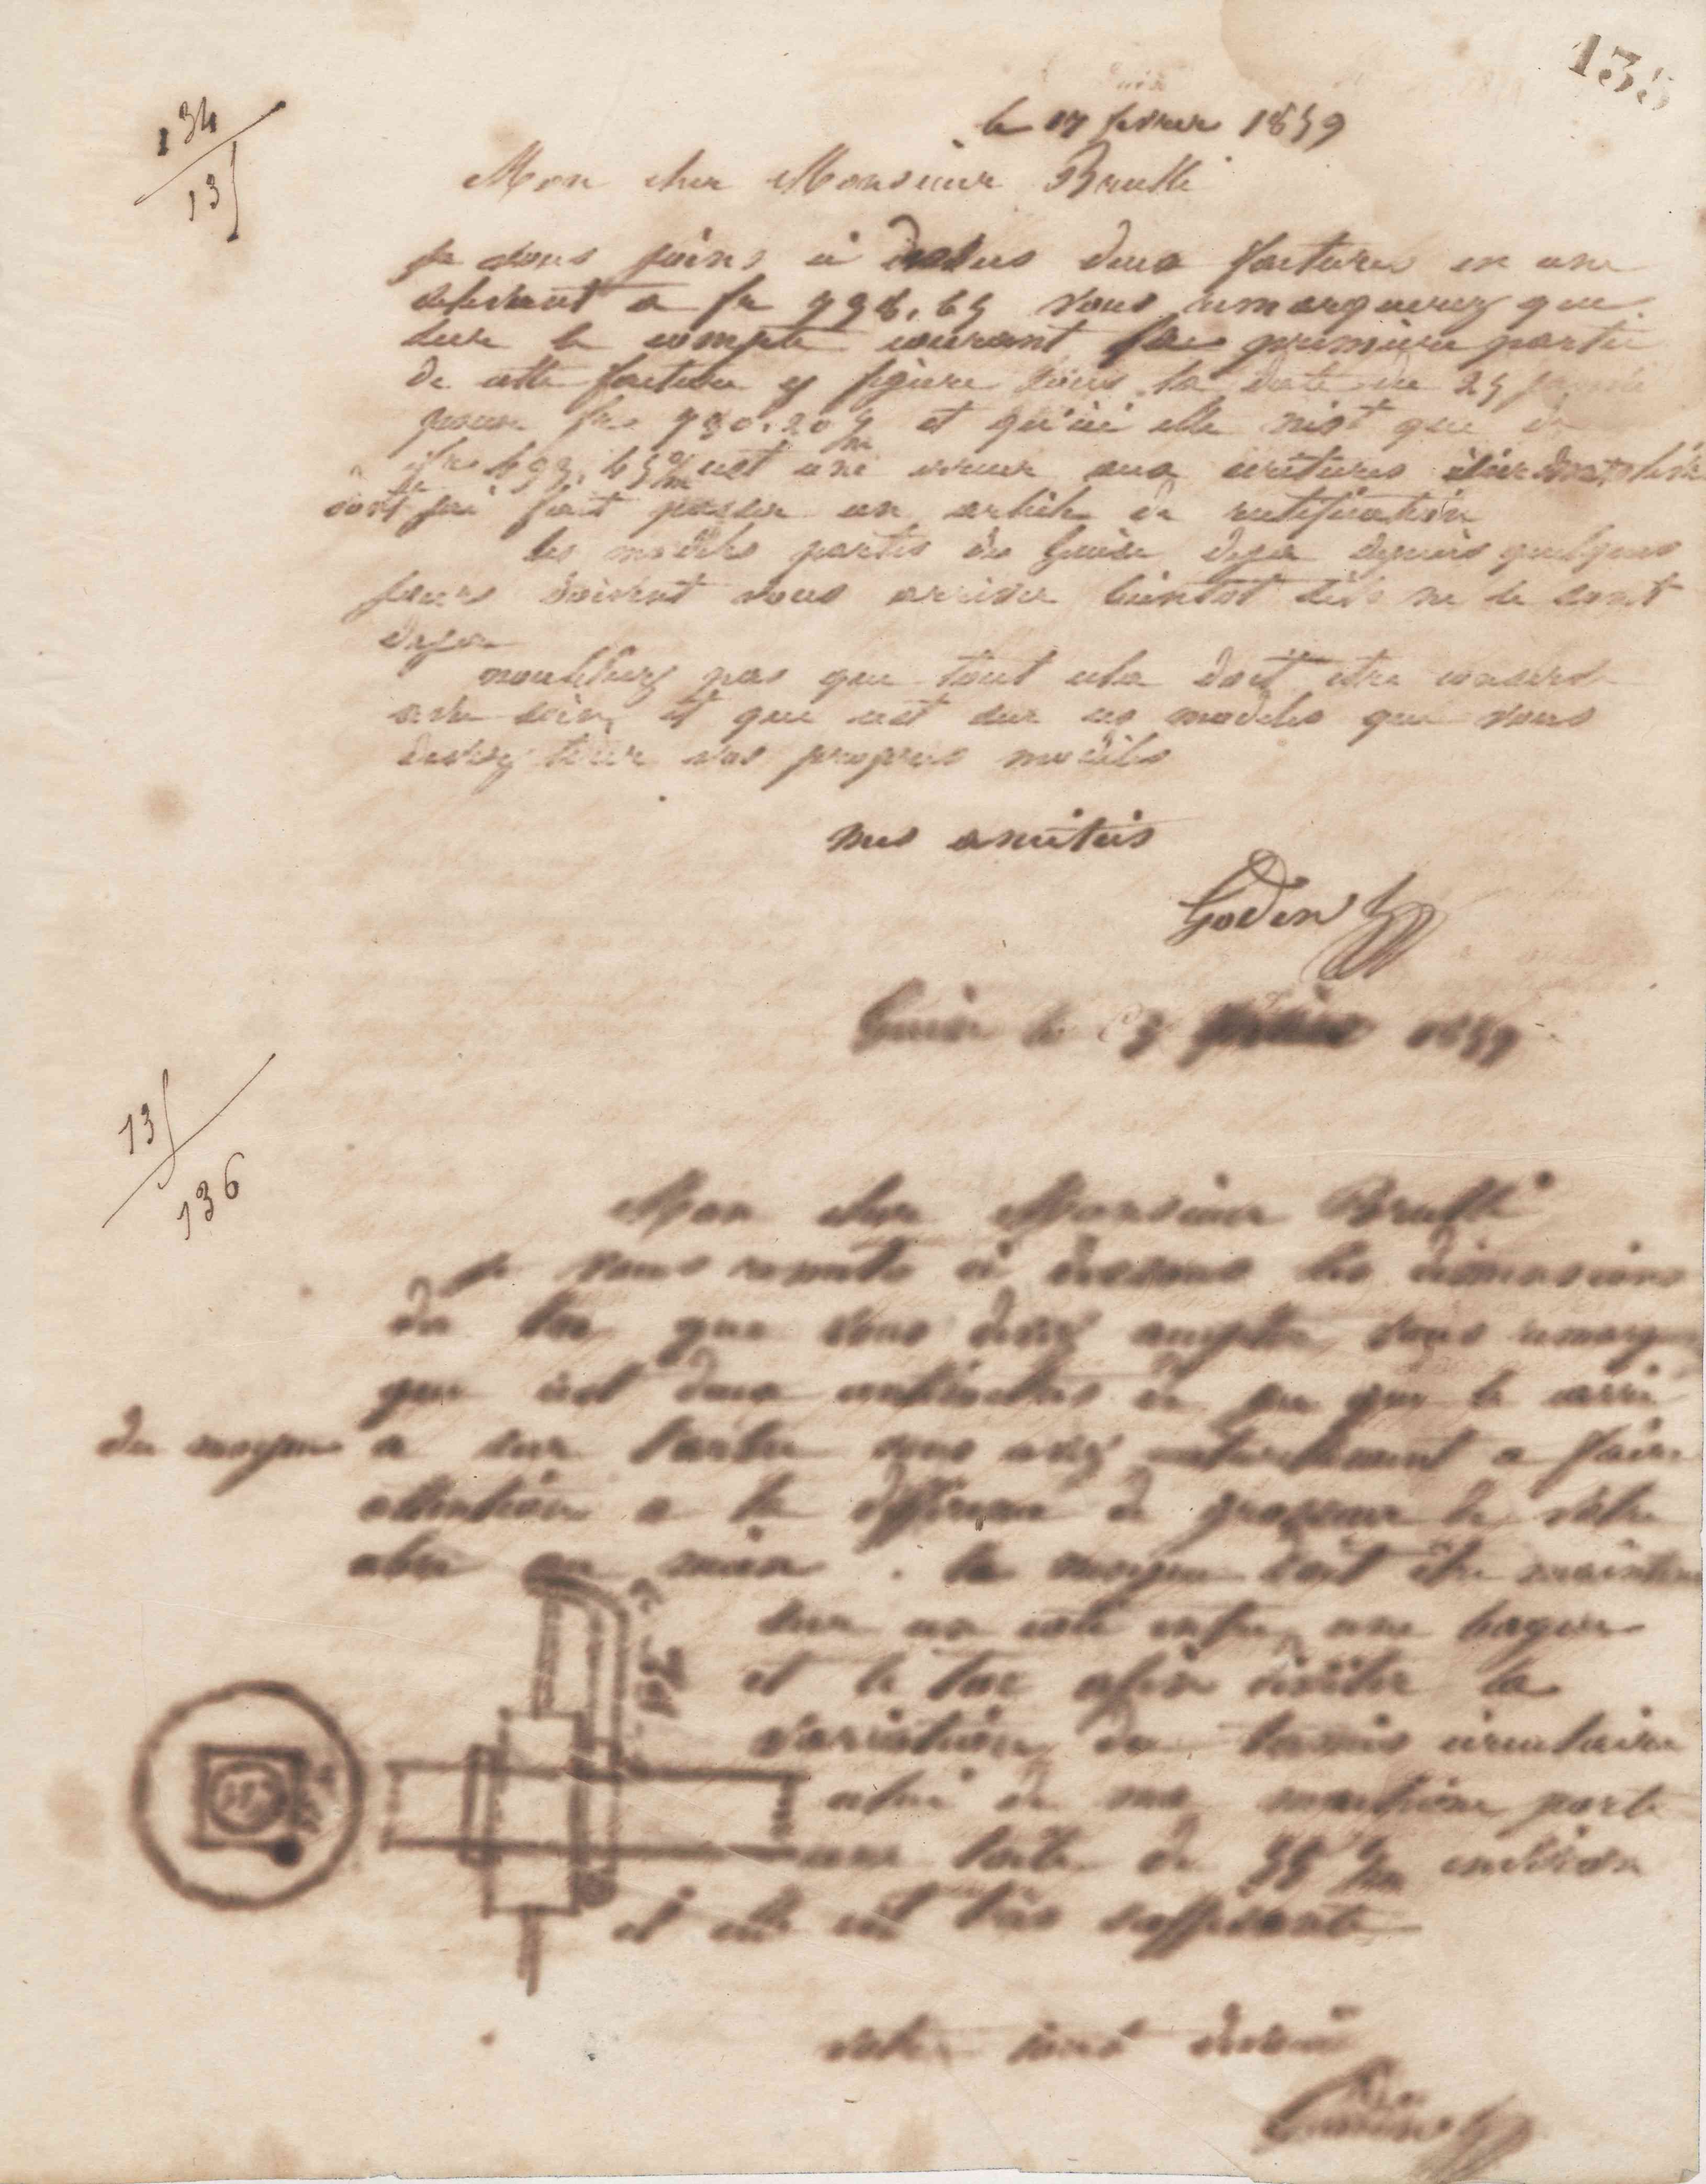 135
134
135
le 17 fevrier 1859
Mon cher Monsieur Brullé
je vous joins ci dessus deux factures en une
s'elevant a fr 998,65 vous remarquerez que
sur le compte courant la premiere partie
de cette facture y figure sous la date du 25 janvier
pour frs 730.20 et qu'ici elle n'est que de
frs 693,65 c'est une erreur aux ecritures
dont j'ai fait passer un article de rectification
les modeles partis de Guise deja depuis quelques
jours doivent vous arriver bientot s'ils ne le sont
deja
n'oubliez pas que tout cela doit etre conservé
avec soin et que c'est sur ces modeles que vous
devrez tirer vos propres modeles
mes amitiés
Godin
Guise le 1859
135
136
Mon cher Monsieur Brullé
je vous remets ci dessous les dimensions
du toc que vous devez accepter vous remarquez
que c'est deux centimetres
du moyeu a sur vous avez naturellement a faire
attention a la différence de grosseur de votre
arbre au mien . le moyeu doit être maintenu
sur un coté entre une bague
et le toc afin d'éviter la
variation du circulaire
celui de ma machine porte
une de 35 m/m environ
et elle est très suffisante
votre tout dévoué
Godin